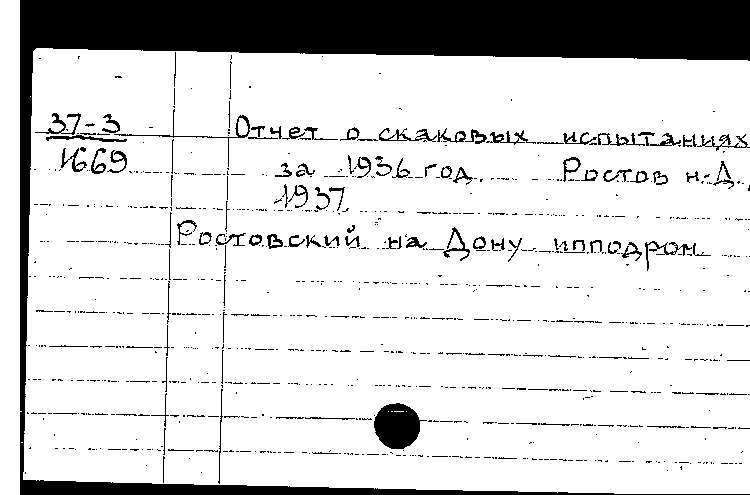 37-3 Отчет о скаковых испытаниях
1669 за 1936 год. Ростов н.-Д.,
1937.
Ростовский на Дону ипподром.